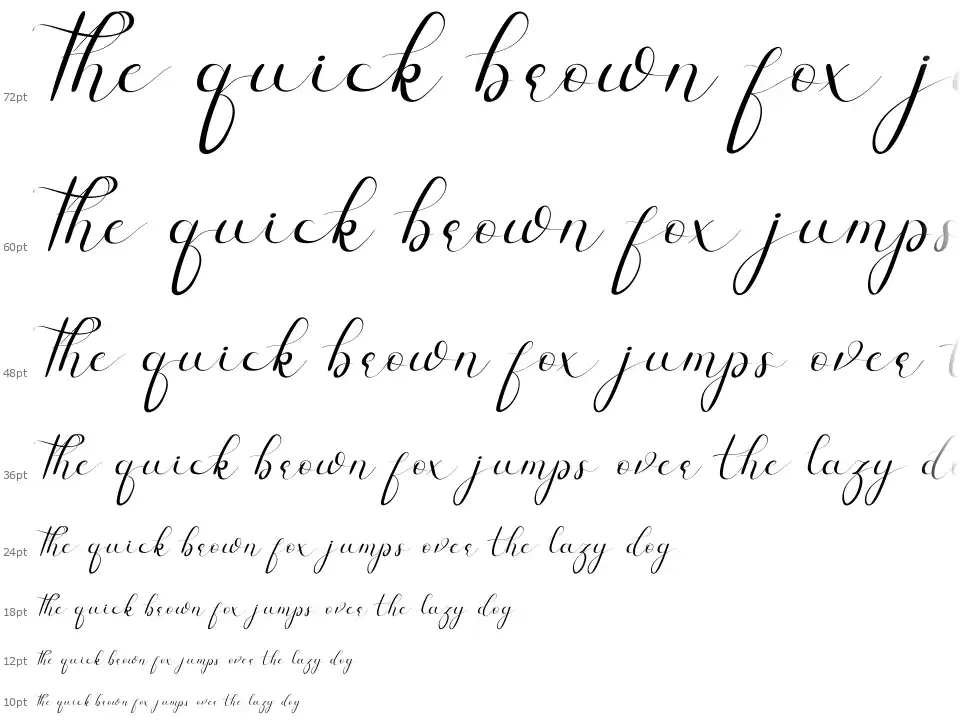 72pt the quick brown fox j
60pt the quick brown fox jumps
48pt the quick brown fox jumps over
36pt the quick brown fox jumps over the lazy
24pt the quick brown fox jumps over the lazy dog
18pt the quick brown fox jumps over the lazy dog
12pt the quick brown fox jumps over the lazy dog
10pt the quick brown fox jumps over the lazy dog